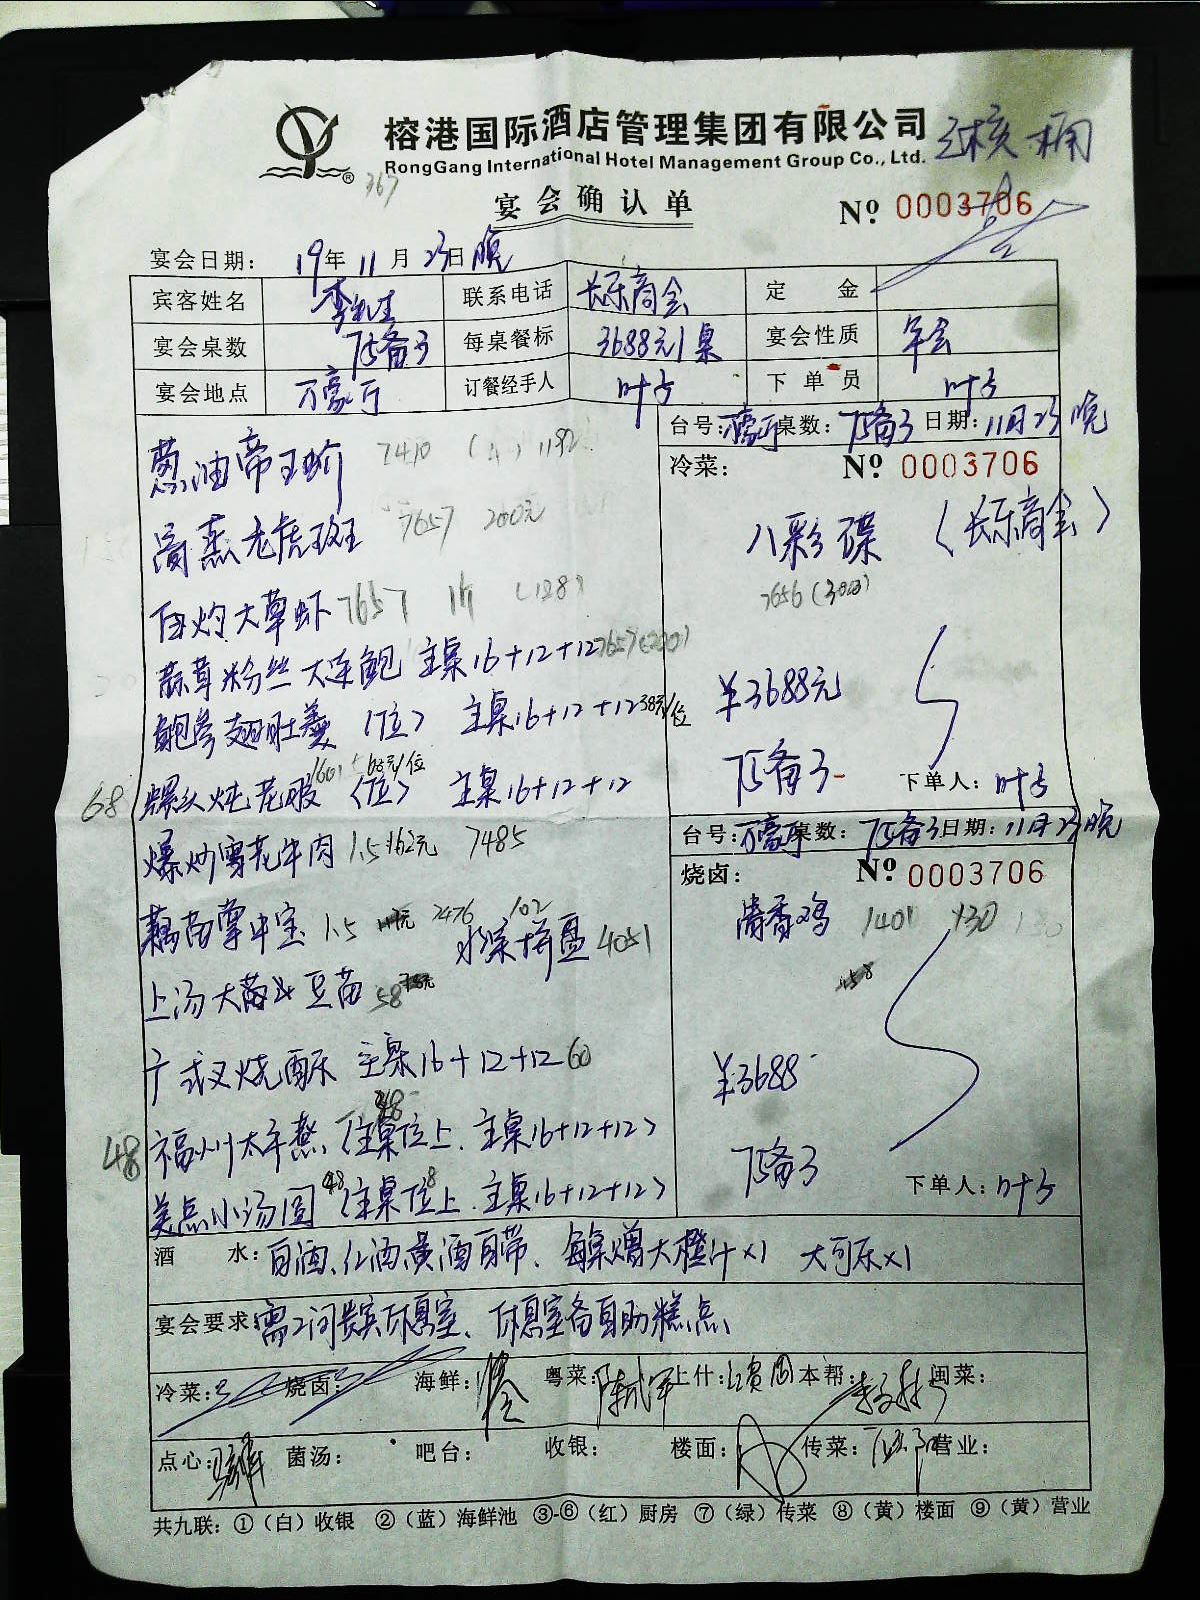 榕港国际酒店管理集团有限公司
RongGang International Hotel Management Group Co., Ltd.
367
宴会确认单
№ 0003706
宴会日期： 19年 11月 23日 晚
宾客姓名 联系电话 长乐商会 定金
宴会桌数 75备3 每桌餐标 3688元/桌 宴会性质 年会
宴会地点 万豪厅 订餐经手人 叶方 下单员 叶方
台号：万豪厅 桌数：75备3 日期：11月23晚
冷菜： № 0003706
八彩碟 （长乐商会）
7656
¥3688元
75备3 下单人：叶方
葱油帝王蚧 7410
清蒸老虎斑 7657 200元
白灼大草虾 7657 （128）
蒜茸粉丝大连鲍 主桌16+12+12
鲍参翅肚羹（位） 主桌16+12+12 38元/位
68 螺头炖花胶（位） 68元/位 主桌16+12+12
爆炒雪花牛肉 1.5 162元 7485
1.5 2476 102
水果拼盘 4051
上汤大茜豆苗 58
广式叉烧酥 主桌16+12+12 60
48 福州太平燕（主桌位上．主桌16+12+12）
美点小汤圆（主桌位上．主桌16+12+12）
台号：万豪厅 桌数：75备3 日期：11月23晚
烧卤： № 0003706
清香鸡 1401 130
¥3688
75备3 下单人：叶方
酒水：白酒、红酒黄酒自带、每桌赠大橙汁×1 大可乐×1
宴会要求：需2间贵宾休息室、休息室备自助糕点
冷菜： 烧卤： 海鲜： 粤菜： 上什： 本帮： 闽菜：
点心： 菌汤： 吧台： 收银： 楼面： 传菜： 营业：
共九联：①（白）收银 ②（蓝）海鲜池 ③-⑥（红）厨房 ⑦（绿）传菜 ⑧（黄）楼面 ⑨（黄）营业